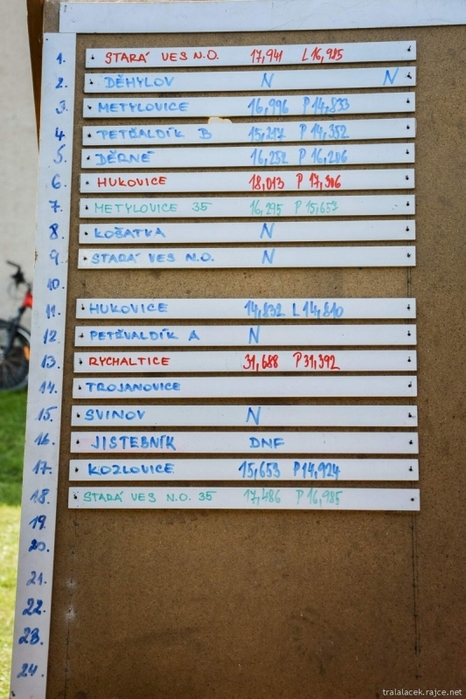 1. STARÁ VES N.O. 17,941 L 16,985
2. DĚHYLOV N N
3. METYLOVICE 16,996 P 14,833
4. PETŘVALDÍK B 15,217 P 14,352
5. DĚRNÉ 16,252 P 16,206
6. HUKOVICE 18,013 P 17,306
7. METYLOVICE 35 16,295 P 15,657
8. KOŠATKA N
9. STARÁ VES N.O. N
10.
11. HUKOVICE 14,832 L 14,810
12. PETŘVALDÍK A N
13. RYCHALTICE 31,688 P 31,392
14. TROJANOVICE
15. SVINOV N
16. JISTEBNÍK DNF
17. KOZLOVICE 15,653 P 14,924
18. STARÁ VES N.O. 35 17,486 P 16,985
19.
20.
21.
22.
23.
24.
tralalacek.rajce.net